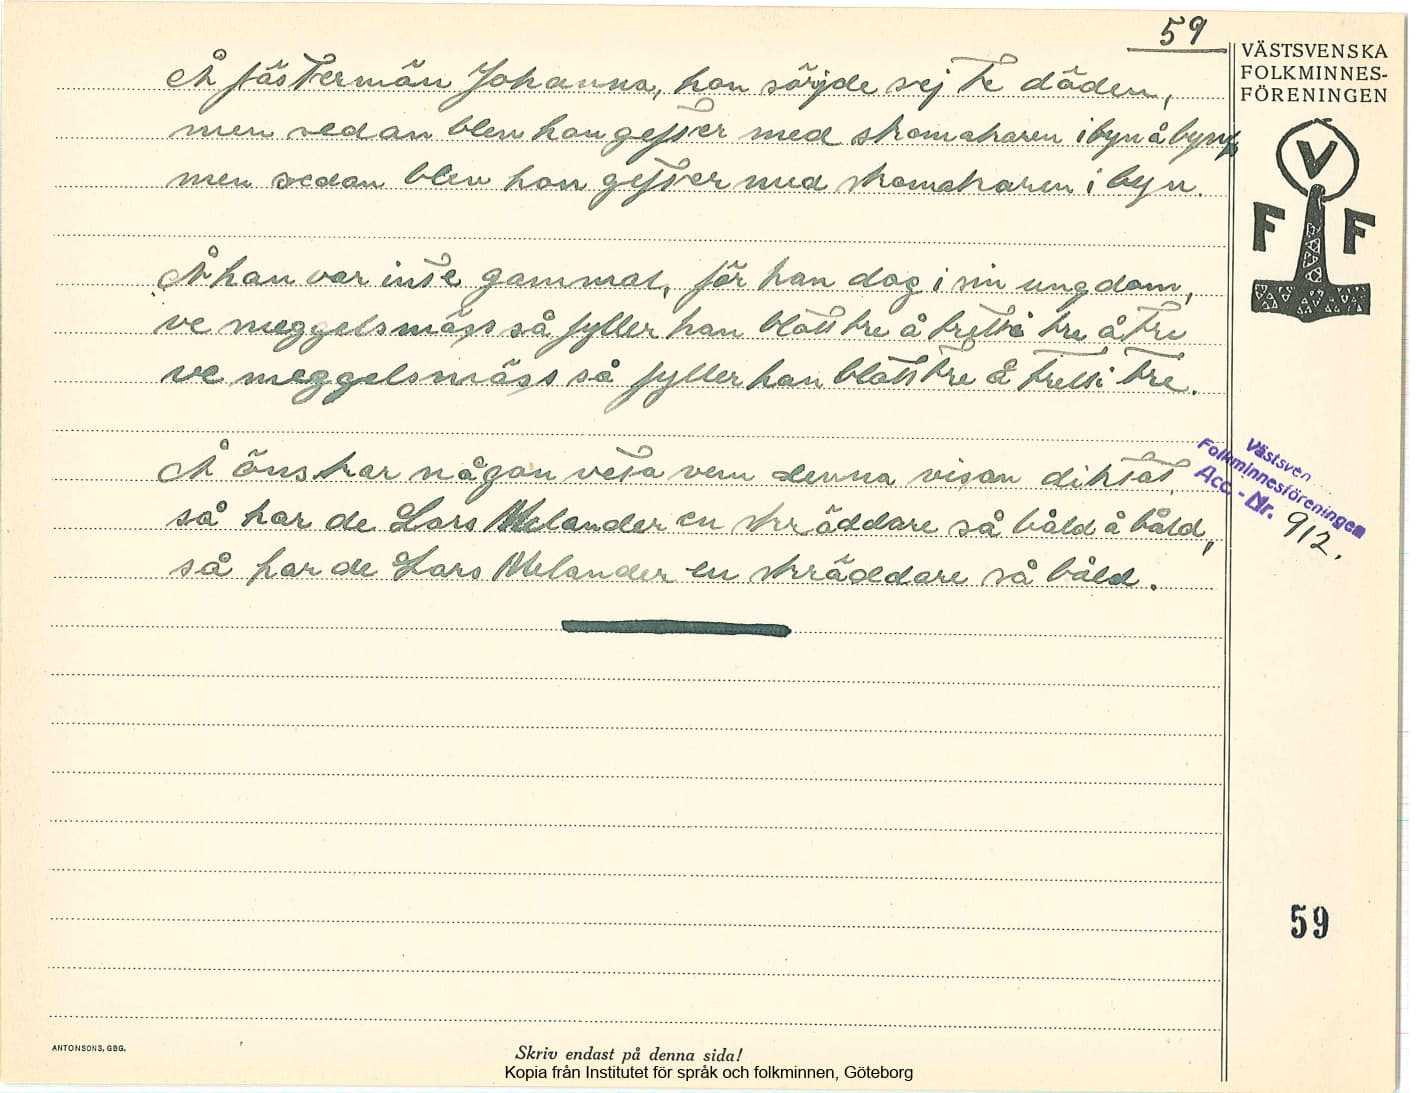 59
VÄSTSVENSKA
FOLKMINNES-
FÖRENINGEN
V
F F
Å fästermän Johanna, hon sörjde sej te döden,
men sedan blev hon gefter med skomakaren i byn å byn,
men sedan blev hon gefter med skomakaren i byn.
Å han var inte gammal, för han dog i sin ungdom,
ve meggelsmäss så fyller han blott tre å tretti tre å tre
ve meggelsmäss så fyller han blott tre å tretti tre.
Å önskar någon veta vem denna visan diktat,
så har de Lars Melander en skräddare så båld å båld,
så har de Lars Melander en skräddare så båld.
Västsven
Folkminnesföreningen
Acc.-Nr. 912.
59
ANTONSONS, GBG.
Skriv endast på denna sida!
Kopia från Institutet för språk och folkminnen, Göteborg